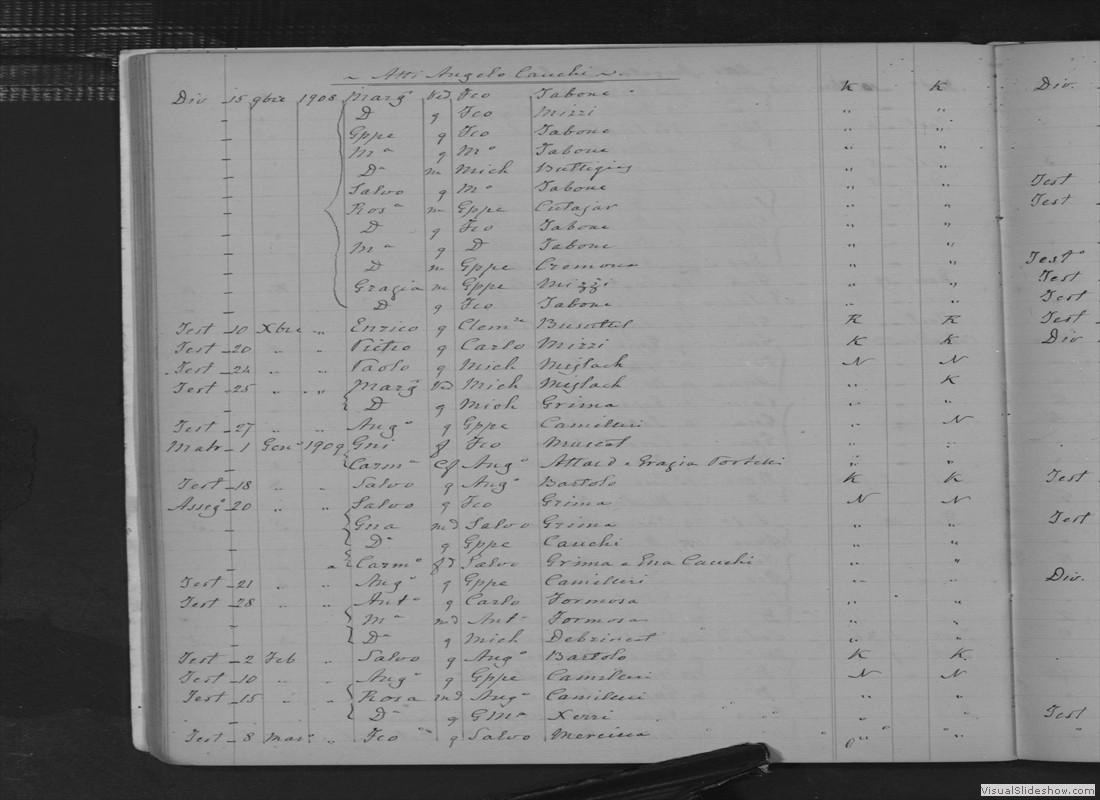 ~ Atti Angelo Cauchi ~
Div 15 9bre 1908 Margª Vid Fco Tabone K K Div.
D g Fco Mizzi " "
Gppe g Fco Tabone " "
Mª g Mº Tabone " "
Dª m Mich Buttigieg " "
Salvo g Mº Tabone " " Test
Rosª m Gppe Cutajar " " Test
D g Fco Tabone " "
Mª g D Tabone " "
D m Gppe Cremona " " Testº
Grazia m Gppe Mizzi " " Test
D g Fco Tabone " " Test
Test 10 Xbre " Enrico g Clemte Busuttil K K Test
Test 20 " " Pietro g Carlo Mizzi K K Div
Test 24 " " Paolo g Mich Mejlach N N
Test 25 " " Margª Vd Mich Mejlach " K
D g Mich Grima " "
Test 27 " " Angº g Gppe Camilleri " N
Matr 1 Genº 1909 Gni f Fco Muscat " "
Carmª Angº Attard e Grazia Portelli " "
Test 18 " " Salvo g Angº Bartolo K K Test
Assegº 20 " " Salvo g Fco Grima N N
Gna md Salvo Grima " " Test
Dª g Gppe Cauchi " "
a Carmº fd Salvo Grima e Gna Cauchi " "
Test 21 " " Angº g Gppe Camilleri " " Div.
Test 28 " " Antº g Carlo Formosa " "
Mª md Antº Formosa " "
Dª g Mich Debrincat " "
Test 2 Feb " Salvo g Angº Bartolo K K
Test 10 " " Angº g Gppe Camilleri N N
Test 15 " " Rosa md Angº Camilleri " "
Dª g GMª Xerri " " Test
Test 8 Marº " Fco g Salvo Mercieca " "
VisualSlideshow.com